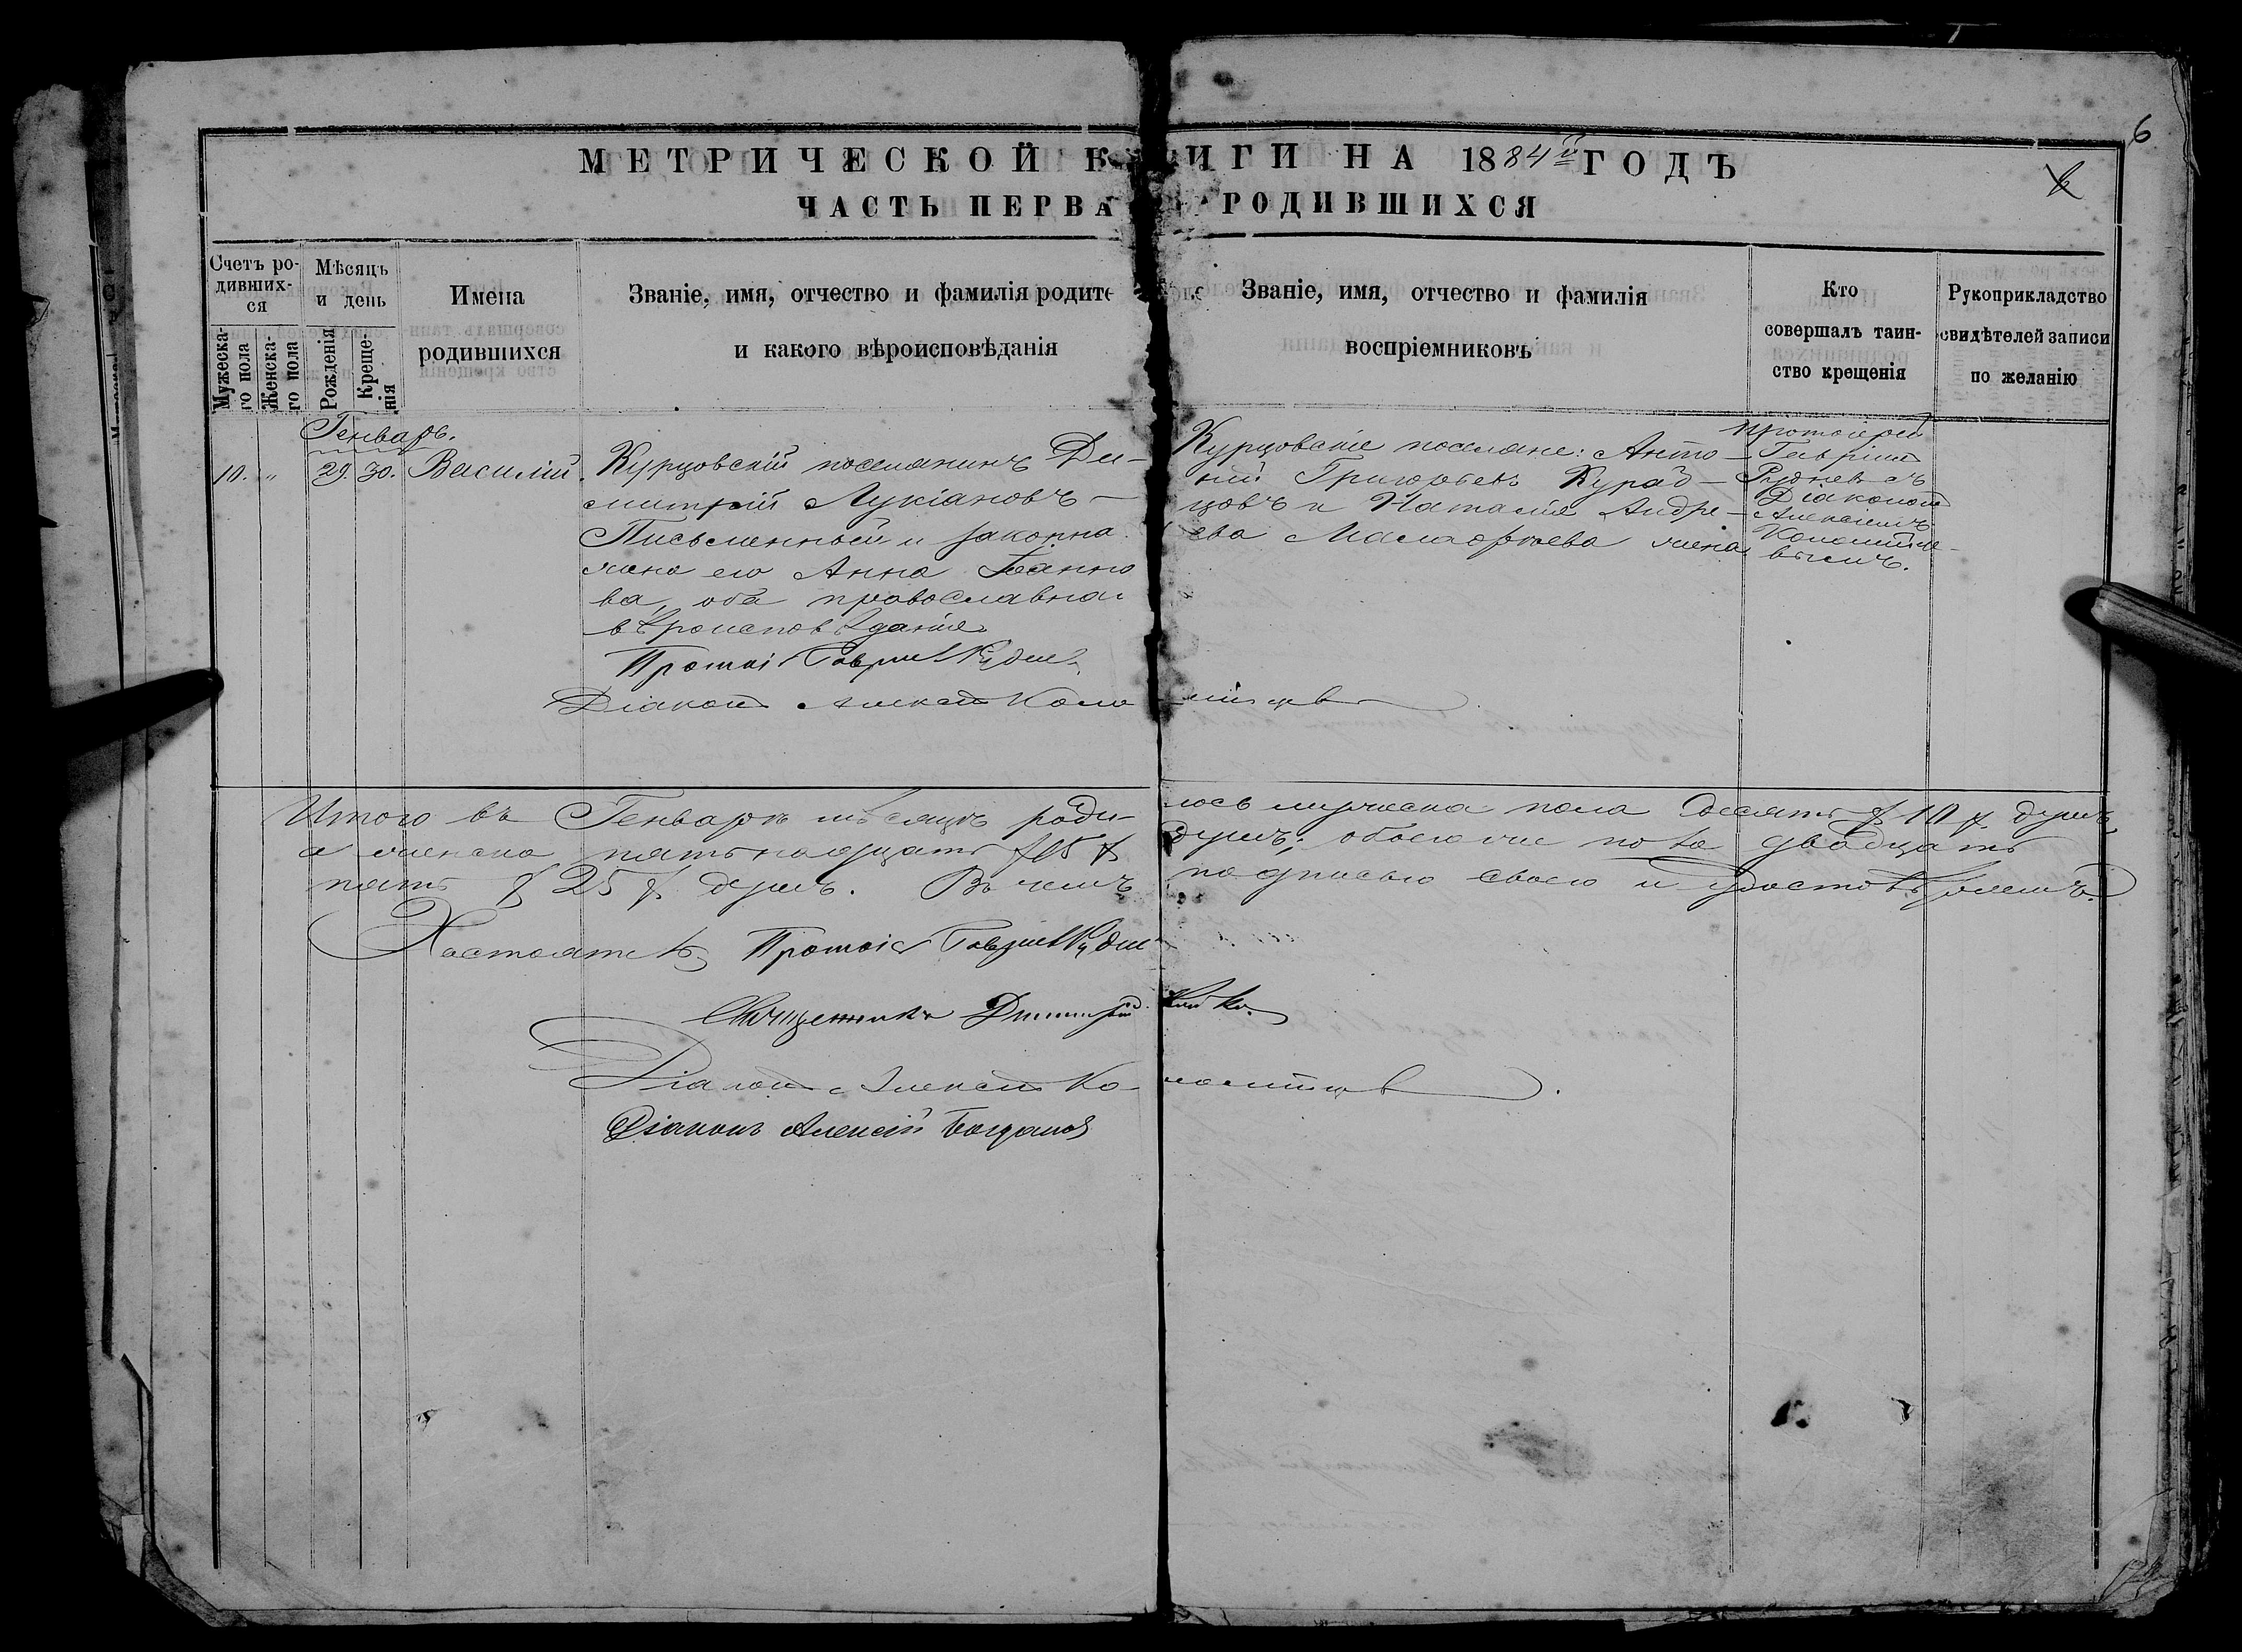 6
МЕТРИЧЕСКОЙ К ИГИ НА 1884й ГОДЪ
6
ЧАСТЬ ПЕРВА РОДИВШИХСЯ
Счетъ ро-
дивших-
ся
Мужеска-
го пола
Женска-
го пола
Мѣсяцъ
и день
Рожденія
Креще-
нія
Имена
родившихся
Званіе, имя, отчество и фамилія родите
и какого вѣроисповѣданія
Званіе, имя, отчество и фамилія
воспріемниковъ
Кто
совершалъ таин-
ство крещенія
Рукоприкладство
свидѣтелей записи
по желанію
Генварь.
10. " 29. 30. Василій.
Курцовскій поселянинъ Ди-
митрій Лукіановъ
Письменный и законна
жена его Анна Іоанно
ва, оба православна
вѣроисповѣданія
Протоі Гавриил Рудне
Діаконъ Алексѣй Коло мійцев
Курцовскіе поселяне: Анто-
ній Григорьевъ Курад-
цовъ и Наталія Андре-
ева жена
Протоіерей
Гавріилъ
Рудневъ съ
Діакономъ
Алексіемъ
Коломійце-
вымъ.
Итого въ Генварѣ мѣсяцѣ роди- лось мужеска пола десять 10 душъ,
а женска пятьнадцать 15 душъ; обоего же пола двадцать
пять 25 душъ. Въ чемъ подписью своею и удостовѣряемъ.
Настоятель Протоі Гавриил Рудне
Священникъ Димитрій Койко.
Діаконъ Алексѣй Ко- ломійцев.
Діаконъ Алексій Богданов